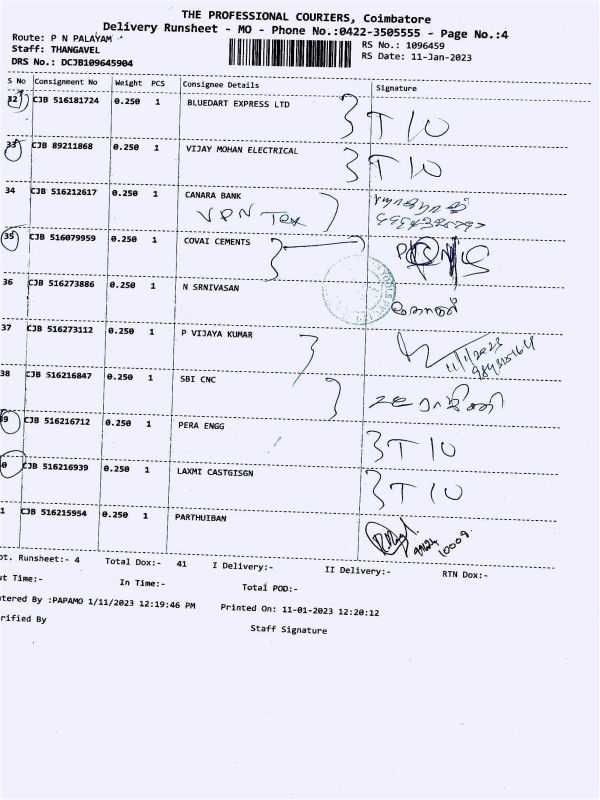 THE PROFESSIONAL COURIERS, Coimbatore
Delivery Runsheet - MO - Phone No.:0422-3505555 - Page No.:4
Route: P N PALAYAM
RS No.: 1096459
Staff: THANGAVEL
RS Date: 11-Jan-2023
DRS No.: DCJB109645904
S No Consignment No Weight PCS Consignee Details Signature
32 CJB 516181724 0.250 1 BLUEDART EXPRESS LTD T 10
33 CJB 89211868 0.250 1 VIJAY MOHAN ELECTRICAL T 10
34 CJB 516212617 0.250 1 CANARA BANK
VPN Tex
35 CJB 516079959 0.250 1 COVAI CEMENTS
36 CJB 516273886 0.250 1 N SRNIVASAN
37 CJB 516273112 0.250 1 P VIJAYA KUMAR
11/1/2023
38 CJB 516216847 0.250 1 SBI CNC
39 CJB 516216712 0.250 1 PERA ENGG T 10
0 CJB 516216939 0.250 1 LAXMI CASTGISGN T 10
1 CJB 516215954 0.250 1 PARTHUIBAN
10009
ot. Runsheet:- 4 Total Dox:- 41 I Delivery:- II Delivery:- RTN Dox:-
ut Time:- In Time:- Total POD:-
ntered By :PAPAMO 1/11/2023 12:19:46 PM Printed On: 11-01-2023 12:20:12
rified By Staff Signature